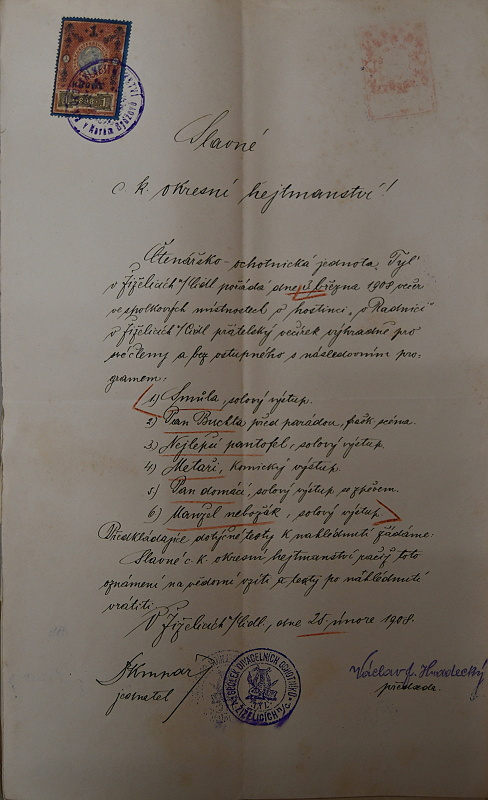 1898
v Novém Bydžově
Slavné
c. k. okresní hejtmanství!
Čtenářsko-ochotnická jednota "Tyl"
v Žiželicích n/Cidl. pořádá dne března 1908 večer
ve spolkových místnostech, v hostinci, "u Radnice"
v Žiželicích n/Cidl. přátelský večírek výhradně pro
své členy a bez vstupného s následovním pro-
gramem:
1) Smůla, solový výstup.
2) Pan Buchta před parádou, frašk. scéna.
3) Nejlepší pantofel, solový výstup.
4) Metaři, komický výstup.
5) Pan domácí, solový výstup se zpěvem.
6) Manžel nebožák, solový výstup.
Předkládajíce dotyčné texty k nahlédnutí žádáme:
Slavné c. k. okresní hejtmanství račiž toto
oznámení na vědomí vzíti a texty po nahlédnutí
vrátiti.
V Žiželicích n/Cidl., dne 25 února 1908.
jednatel
SPOLEK DIVADELNÍCH OCHOTNÍKŮ
"TYL"
V ŽIŽELICÍCH n/C.
Václav J. Hradecký
předseda.